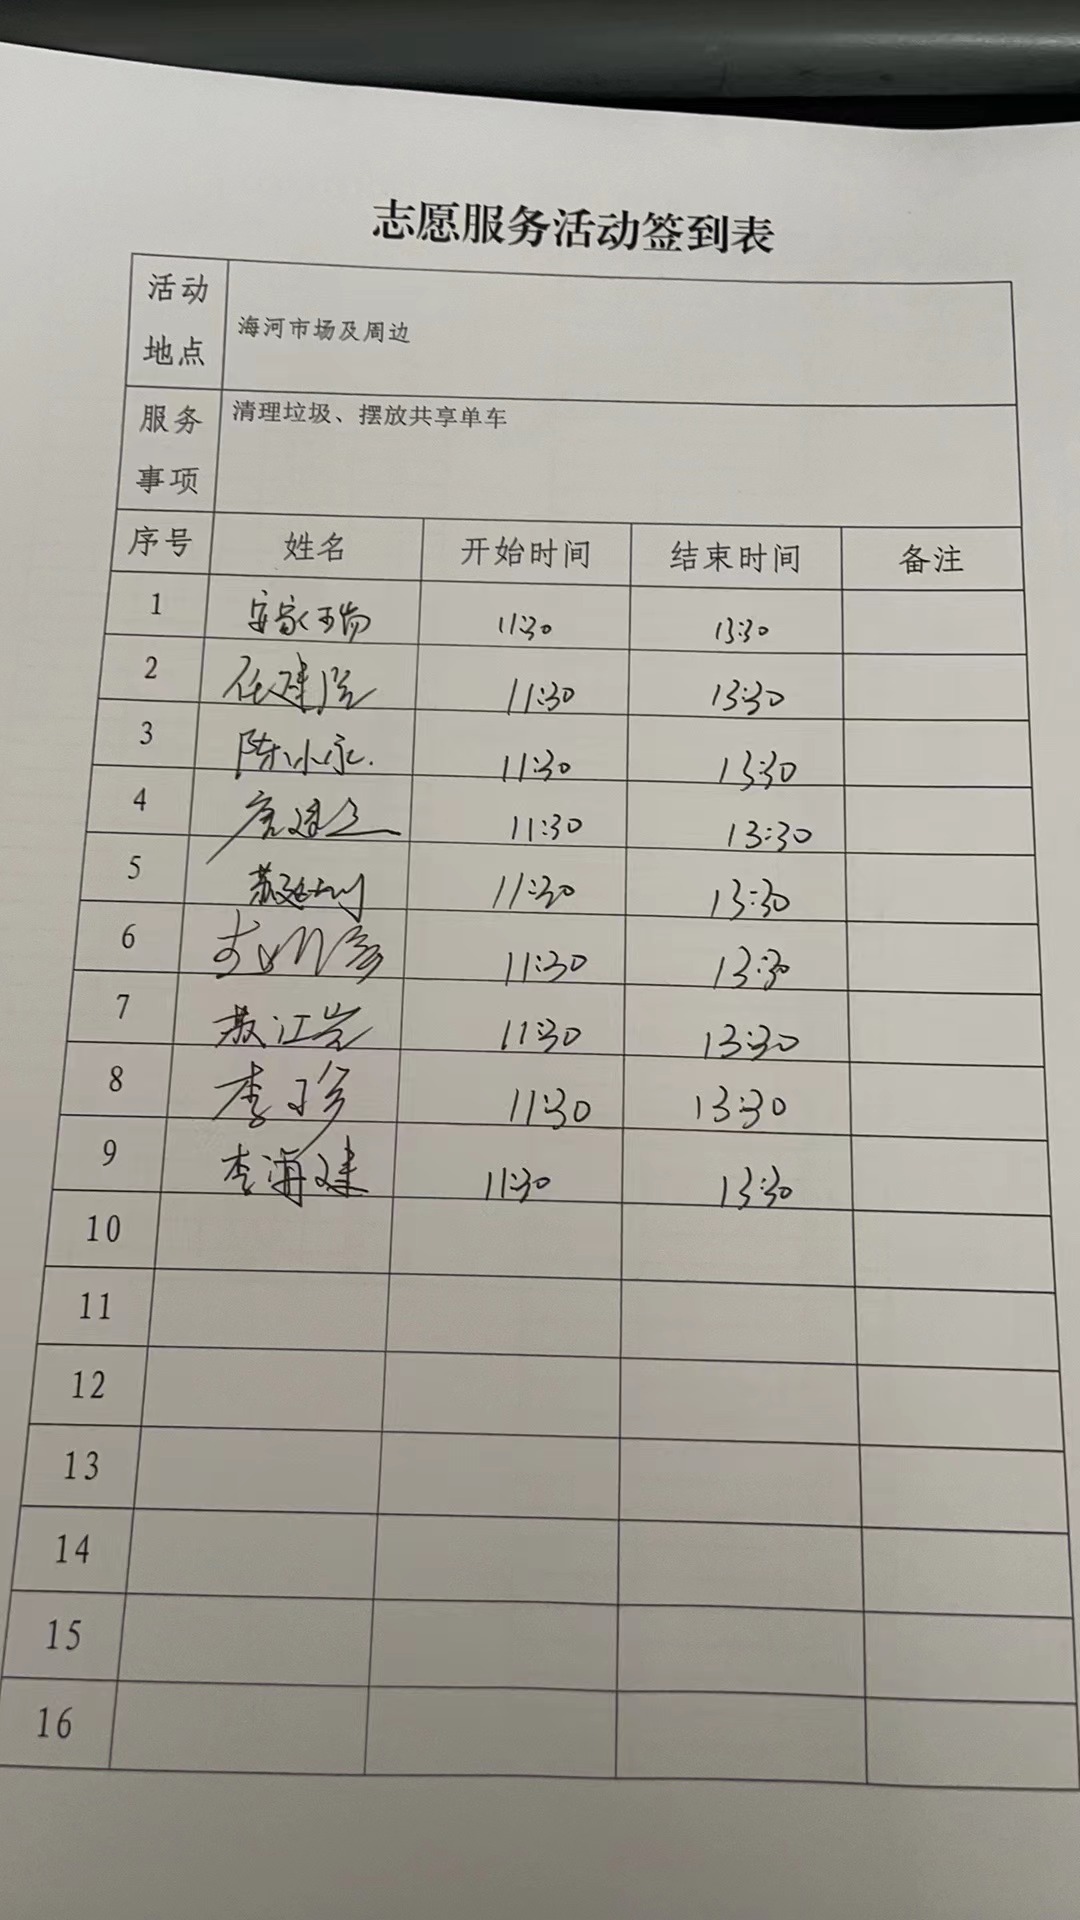 志愿服务活动签到表
活动地点 海河市场及周边
服务事项 清理垃圾、摆放共享单车
序号 姓名 开始时间 结束时间 备注
1 安家瑞 11:30 13:30
2 任建 11:30 13:30
3 陈小永 11:30 13:30
4 11:30 13:30
5 苏 11:30 13:30
6 11:30 13:30
7 江 11:30 13:30
8 李珍 11:30 13:30
9 李海建 11:30 13:30
10
11
12
13
14
15
16